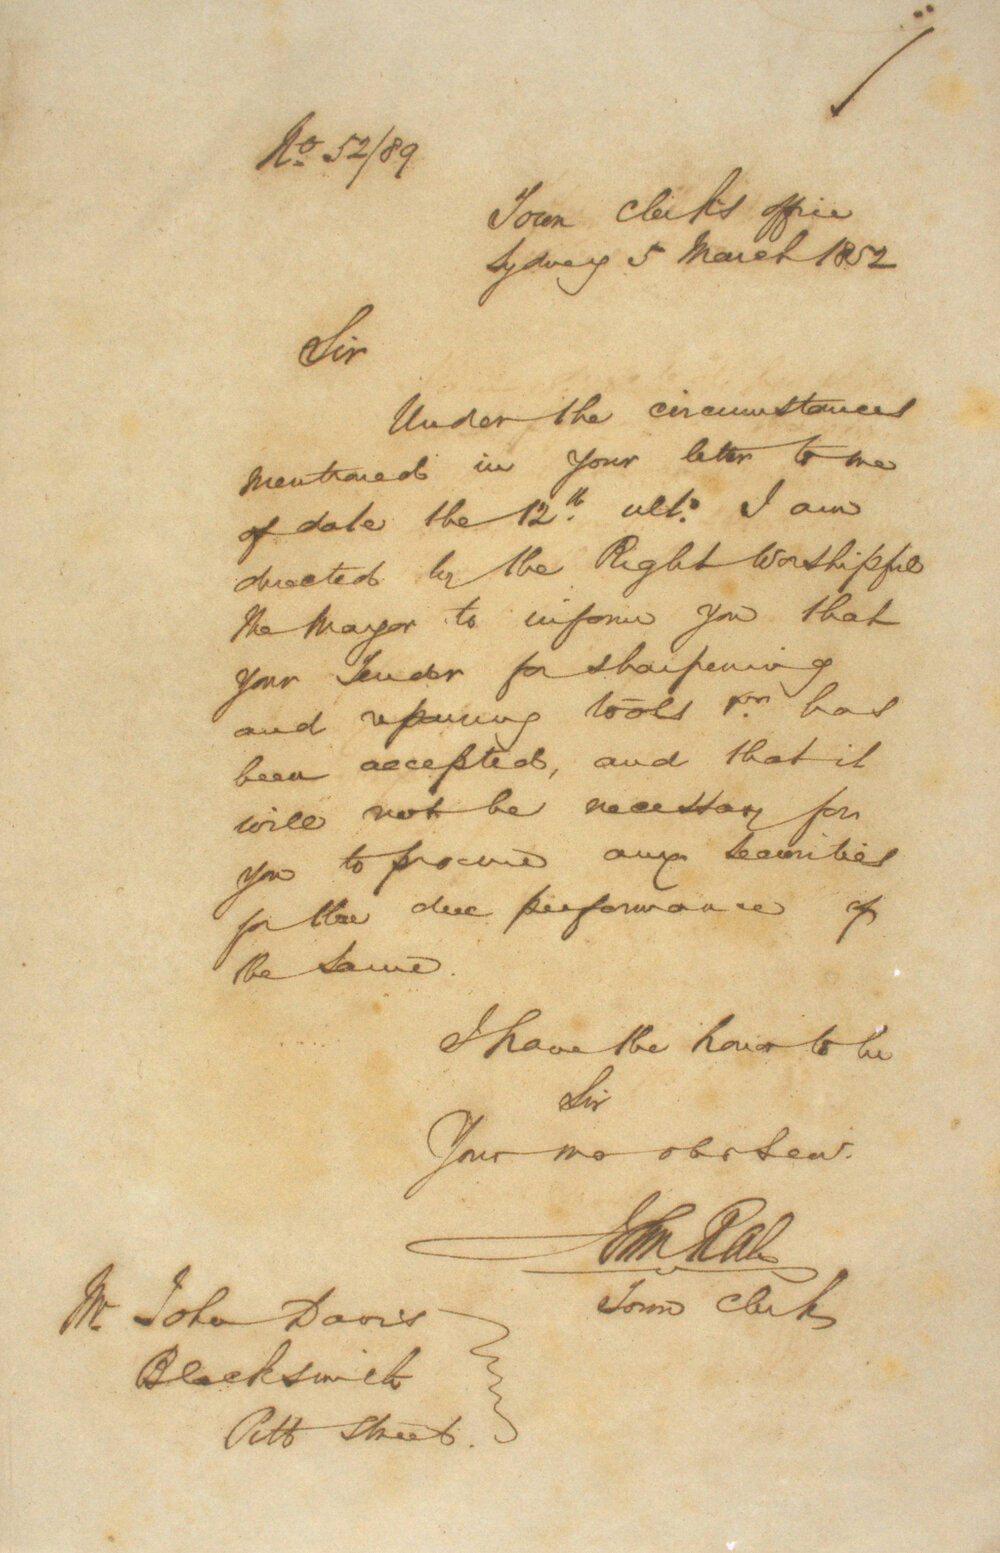 No. 52/89
Town Clerk's office
Sydney 5 March 1852
Sir
Under the circumstances
mentioned in your letter to me
of date the 12th. ulto. I am
directed by the Right Worshipful
the Mayor to inform you that
your Tender for sharpening
and repairing tools has
been accepted, and that it
will not be necessary for
you to procure any securities
for the due performance of
the same.
I have the honor to be
Sir
Your mo obt Serv.
John
Town Clerk
Mr John Davis
Blacksmith
Pitt Street.